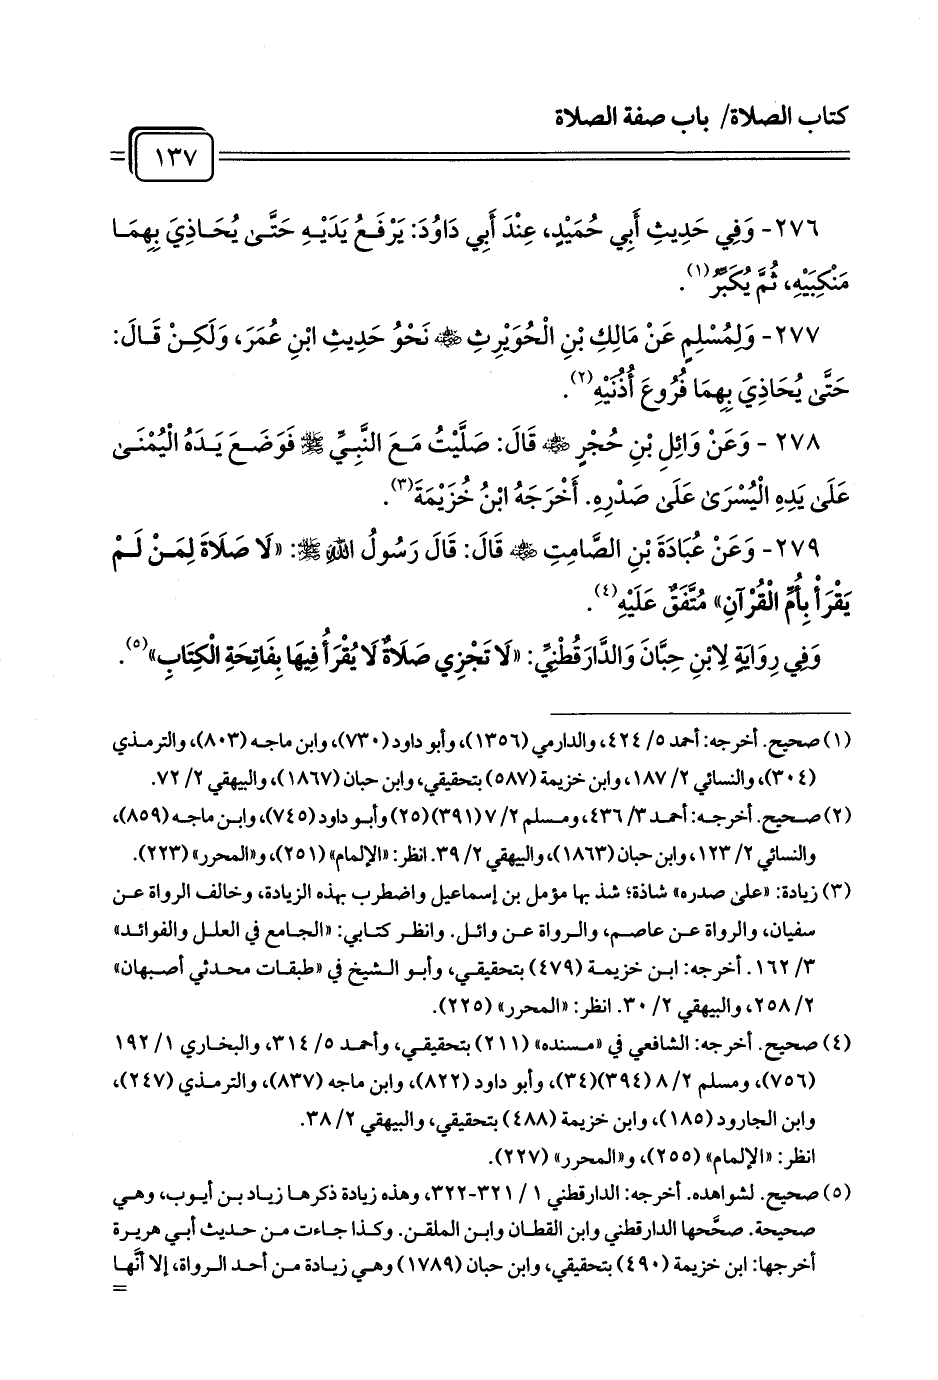 كتاب الصلاة/ باب صفة الصلاة
١٣٧
٢٧٦- وَفِي حَدِيثِ أَبِي حُمَيْدٍ، عِنْدَ أَبِي دَاوُدَ: يَرْفَعُ يَدَيْهِ حَتَّىٰ يُحَاذِيَ بِهِمَا
مَنْكِبَيْهِ، ثُمَّ يُكَبِّرُ(١).
٢٧٧- وَلِمُسْلِمٍ عَنْ مَالِكِ بْنِ الْحُوَيْرِثِ ﵁ نَحْوُ حَدِيثِ ابْنِ عُمَرَ، وَلَكِنْ قَالَ:
حَتَّىٰ يُحَاذِيَ بِهِمَا فُرُوعَ أُذُنَيْهِ(٢).
٢٧٨- وَعَنْ وَائِلِ بْنِ حُجْرٍ ﵁ قَالَ: صَلَّيْتُ مَعَ النَّبِيِّ ﷺ فَوَضَعَ يَدَهُ الْيُمْنَىٰ
عَلَىٰ يَدِهِ الْيُسْرَىٰ عَلَىٰ صَدْرِهِ. أَخْرَجَهُ ابْنُ خُزَيْمَةَ(٣).
٢٧٩- وَعَنْ عُبَادَةَ بْنِ الصَّامِتِ ﵁ قَالَ: قَالَ رَسُولُ اللهِ ﷺ: «لَا صَلَاةَ لِمَنْ لَمْ
يَقْرَأْ بِأُمِّ الْقُرْآنِ» مُتَّفَقٌ عَلَيْهِ(٤).
وَفِي رِوَايَةٍ لِابْنِ حِبَّانَ وَالدَّارَقُطْنِيِّ: «لَا تَجْزِي صَلَاةٌ لَا يُقْرَأُ فِيهَا بِفَاتِحَةِ الْكِتَابِ»(٥).
(١) صحيح. أخرجه: أحمد ٥/ ٤٢٤، والدارمي (١٣٥٦)، وأبو داود (٧٣٠)، وابن ماجه (٨٠٣)، والترمذي
(٣٠٤)، والنسائي ٢/ ١٨٧، وابن خزيمة (٥٨٧) بتحقيقي، وابن حبان (١٨٦٧)، والبيهقي ٢/ ٧٢.
(٢) صحيح. أخرجه: أحمد ٣/ ٤٣٦، ومسلم ٢/ ٧ (٣٩١)(٢٥) وأبو داود (٧٤٥)، وابن ماجه (٨٥٩)،
والنسائي ٢/ ١٢٣، وابن حبان (١٨٦٣)، والبيهقي ٢/ ٣٩. انظر: «الإلمام» (٢٥١)، و«المحرر» (٢٢٣).
(٣) زيادة: «علىٰ صدره» شاذة؛ شذ بها مؤمل بن إسماعيل واضطرب بهذه الزيادة، وخالف الرواة عن
سفيان، والرواة عن عاصم، والرواة عن وائل. وانظر كتابي: «الجامع في العلل والفوائد»
٣/ ١٦٢. أخرجه: ابن خزيمة (٤٧٩) بتحقيقي، وأبو الشيخ في «طبقات محدثي أصبهان»
٢/ ٢٥٨، والبيهقي ٢/ ٣٠. انظر: «المحرر» (٢٢٥).
(٤) صحيح. أخرجه: الشافعي في «مسنده» (٢١١) بتحقيقي، وأحمد ٥/ ٣١٤، والبخاري ١/ ١٩٢
(٧٥٦)، ومسلم ٢/ ٨ (٣٩٤)(٣٤)، وأبو داود (٨٢٢)، وابن ماجه (٨٣٧)، والترمذي (٢٤٧)،
وابن الجارود (١٨٥)، وابن خزيمة (٤٨٨) بتحقيقي، والبيهقي ٢/ ٣٨.
انظر: «الإلمام» (٢٥٥)، و«المحرر» (٢٢٧).
(٥) صحيح. لشواهده. أخرجه: الدارقطني ١/ ٣٢١-٣٢٢، وهذه زيادة ذكرها زياد بن أيوب، وهي
صحيحة. صحَّحها الدارقطني وابن القطان وابن الملقن. وكذا جاءت من حديث أبي هريرة
أخرجها: ابن خزيمة (٤٩٠) بتحقيقي، وابن حبان (١٧٨٩) وهي زيادة من أحد الرواة، إلا أنَّها
=